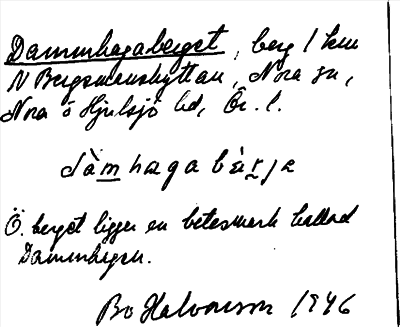 Dammhagaberget, berg 1 km
N Bergsmanshyttan, Nora sn,
Nora o Hjulsjö hd, Ör. l.
dàmhagabèrje
Ö. berget ligger en betesmark kallad
Dammhagen.
Bo Halvarsson 1946